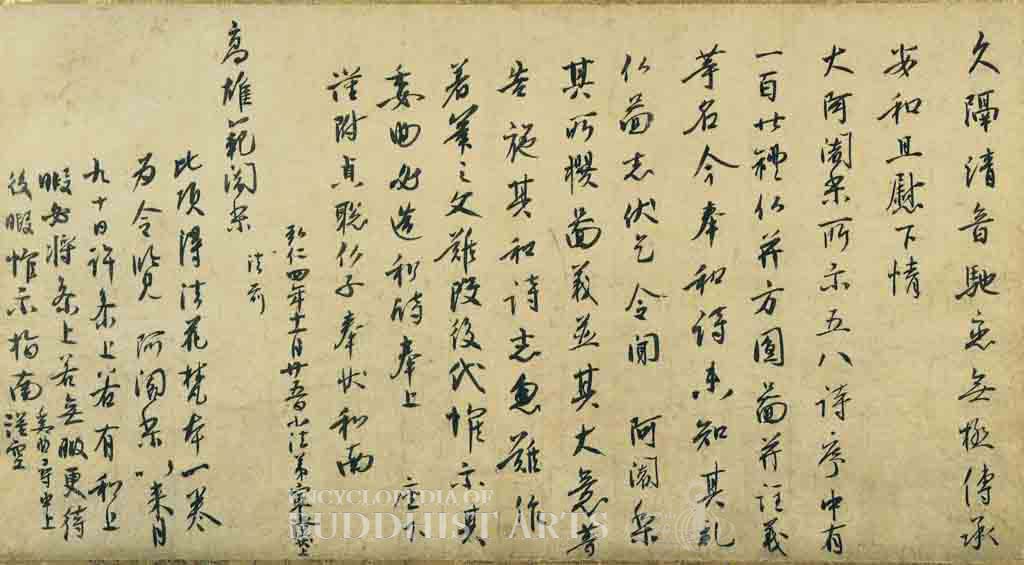 久隔清音馳恋無極傳承
安和且慰下情
大阿闍梨所示五八詩序中有
一百廿禮仏并方圓圖并註義
等名今奉和詩未知其礼
仏圖者伏乞令聞 阿闍梨
其所撰圖義並其大意等
告施其和詩者忽難作
著筆之文難改後代惟示其
委曲必造和詩奉上 座下
謹附貞聡仏子奉状和南
弘仁四年十一月廿五日小法弟最澄状上
高雄範闍梨 法前
此頃得法花梵本一巻
為令覧 阿闍梨以来月
九十日許参上若有和上
暇必将参上若無暇更待
後暇惟示指南 謹空
ENCYCLOPEDIA OF
BUDDHIST ARTS